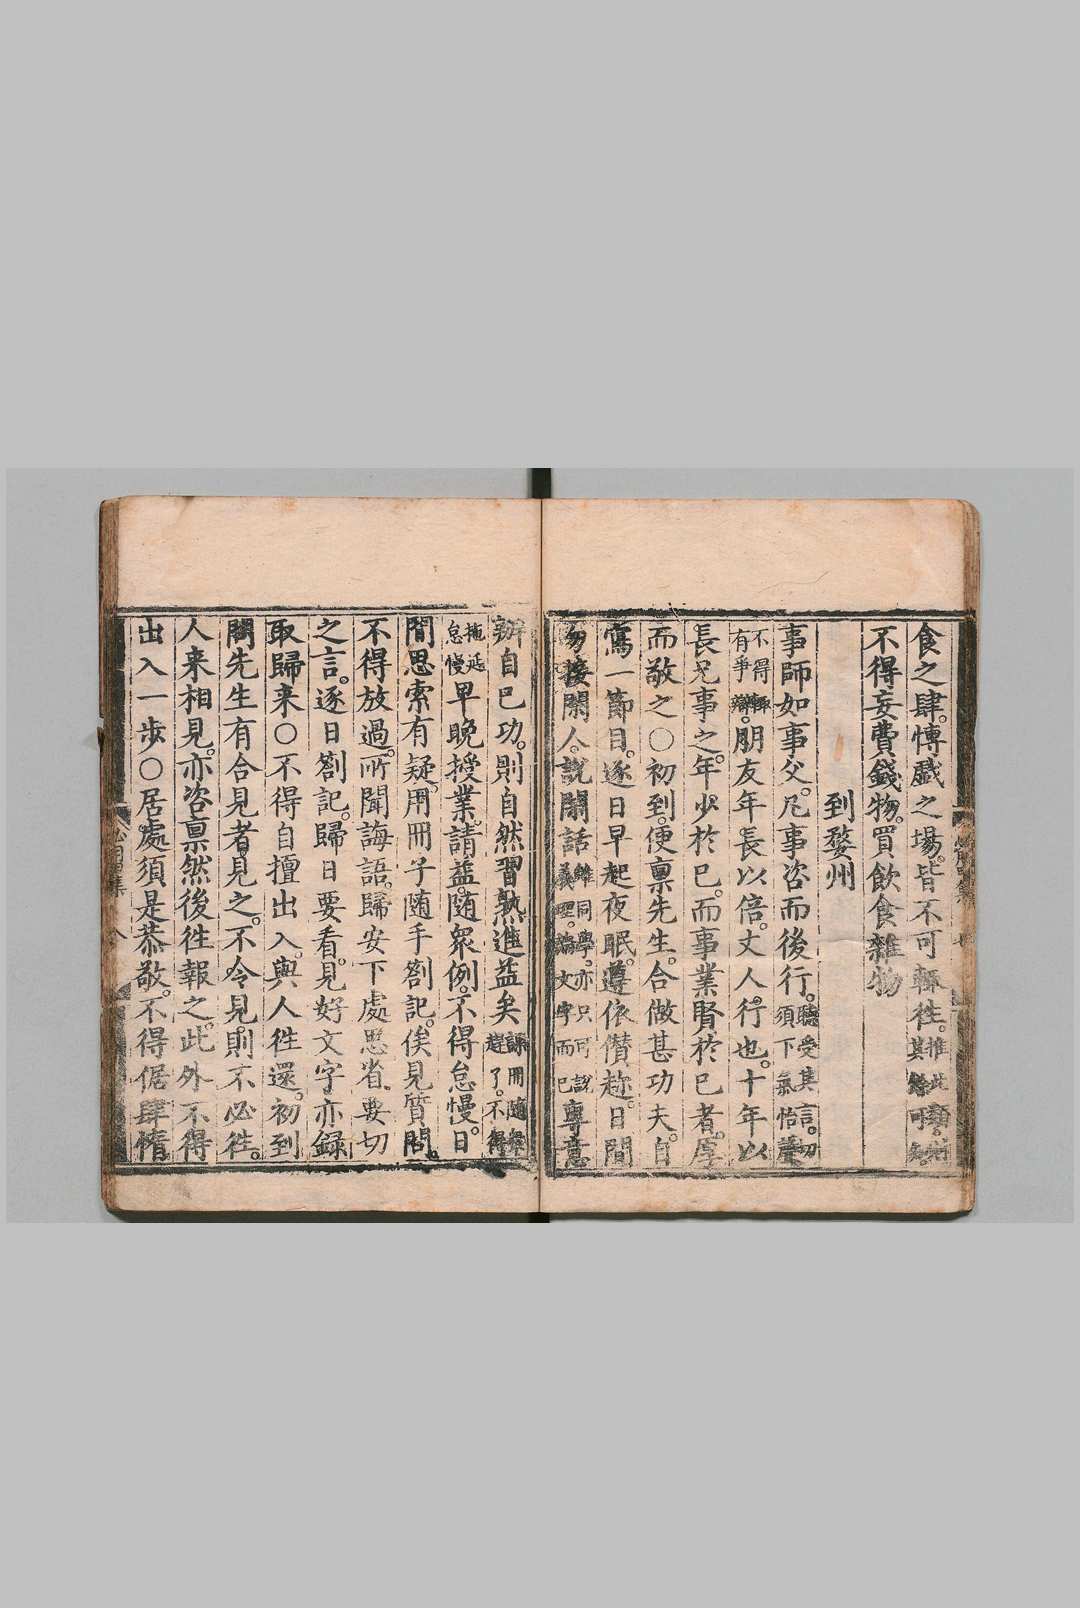 食之肆。愽戲之場。皆不可輒徃。推此類
其餘可知。
不得妄費錢物。買飲食雜物
到婺州
事師如事父。凡事咨而後行。聽受其言。切
須下氣怡
不得輒
有爭辯。朋友年長以倍。丈人行也。十年以
長兄事之。年少於已。而事業賢於已者。厚
而敬之〇初到。便禀先生。合做甚功夫。自
寫一節目。逐日早起夜眠。遵依儹趂。日間
勿接閑人。說閑話雖同學。亦只可說
義理。論文字而已專意
辦自已功。則自然習熟進益矣課冊隨
趕了。不得
拖延
怠慢早晚授業。請益。隨衆例。不得怠慢。日
間思索有疑。用冊子随手劄記。俟見質問。
不得放過。所聞誨語。歸安下處思省。要切
之言。逐日劄記。歸日要看。見好文字亦録
取歸来〇不得自擅出入。與人徃還。初到
問先生有合見者見之。不令見。則不必徃。
人来相見。亦咨禀然後徃報之。此外不得
出入一步〇居處須是恭敬。不得倨肆惰